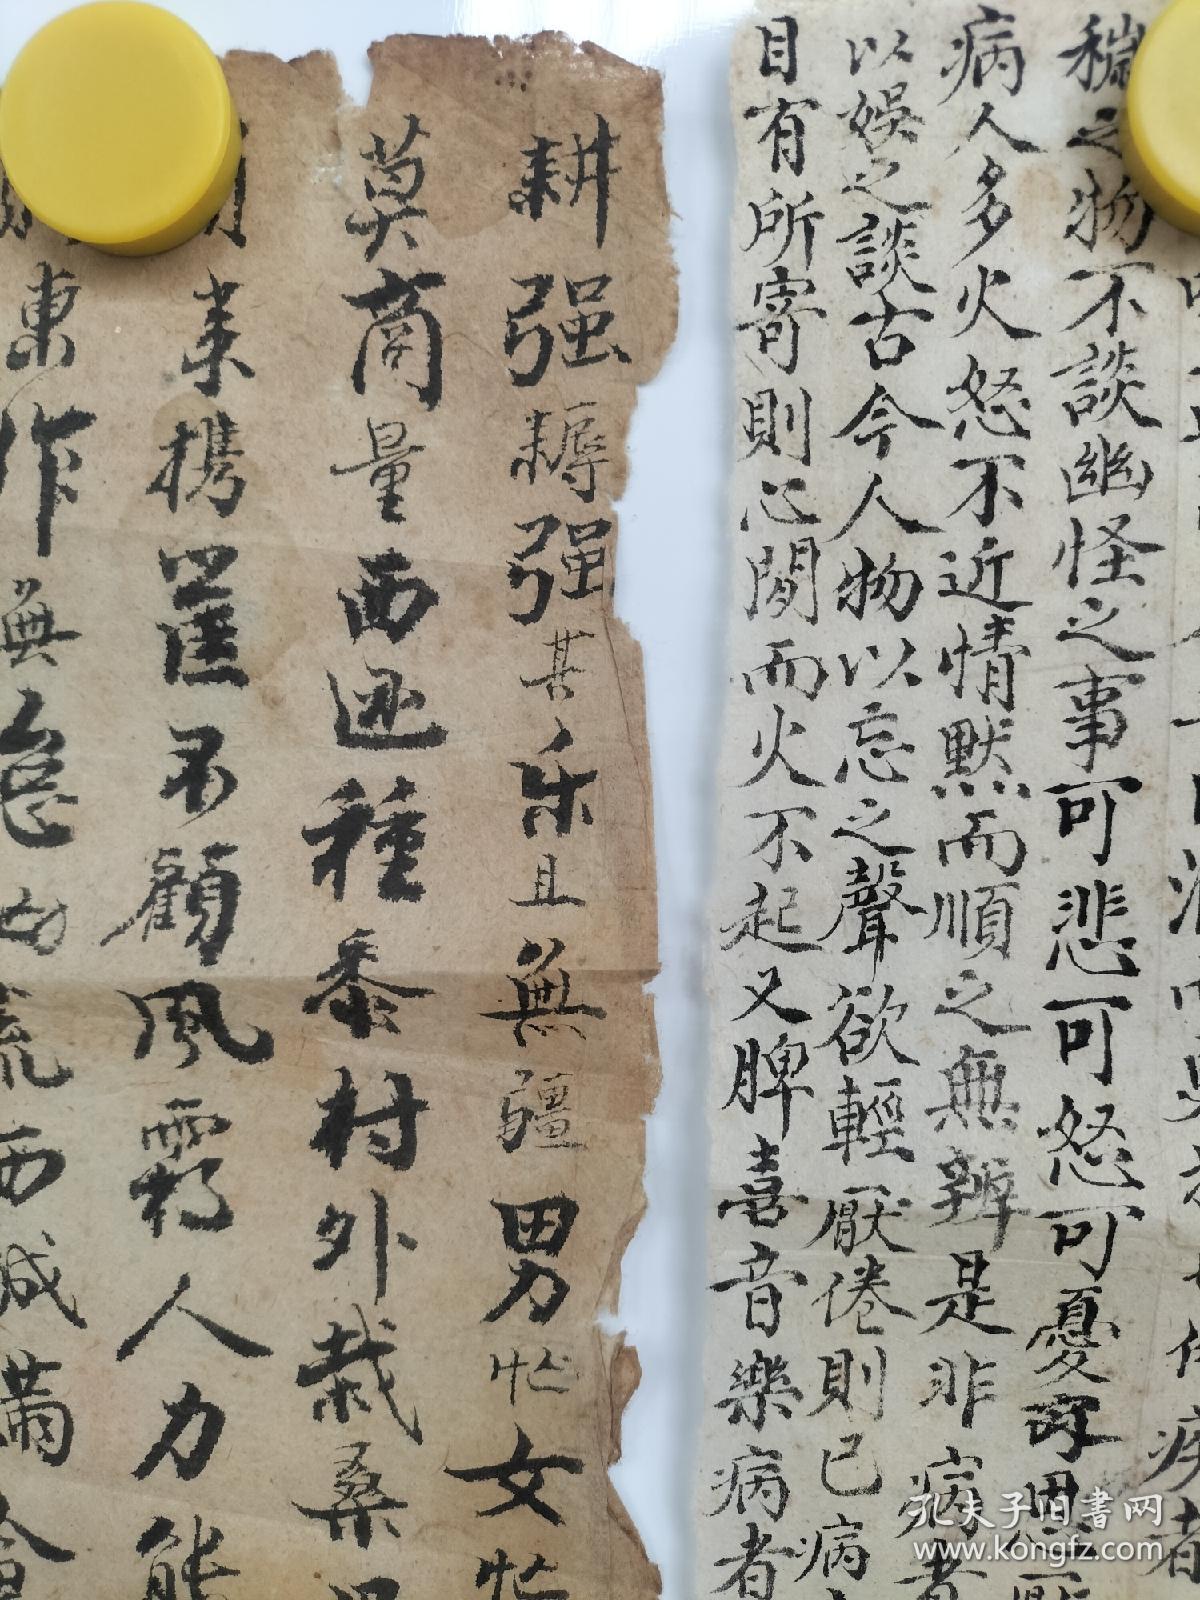 穢之物不談幽怪之事可悲可怒可憂
病人多火怒不近情默而順之無辨是非病者
以娛之談古今人物以忘之聲欲輕厭倦則已病
目有所寄則心閒而火不起又脾喜音樂病者
耕强耨强其乐且無疆男忙女忙
莫商量西迎種黍村外栽桑
来携筐不顧風霜人力能
東作無怠西成滿倉
孔夫子旧書网
www.kongfz.com